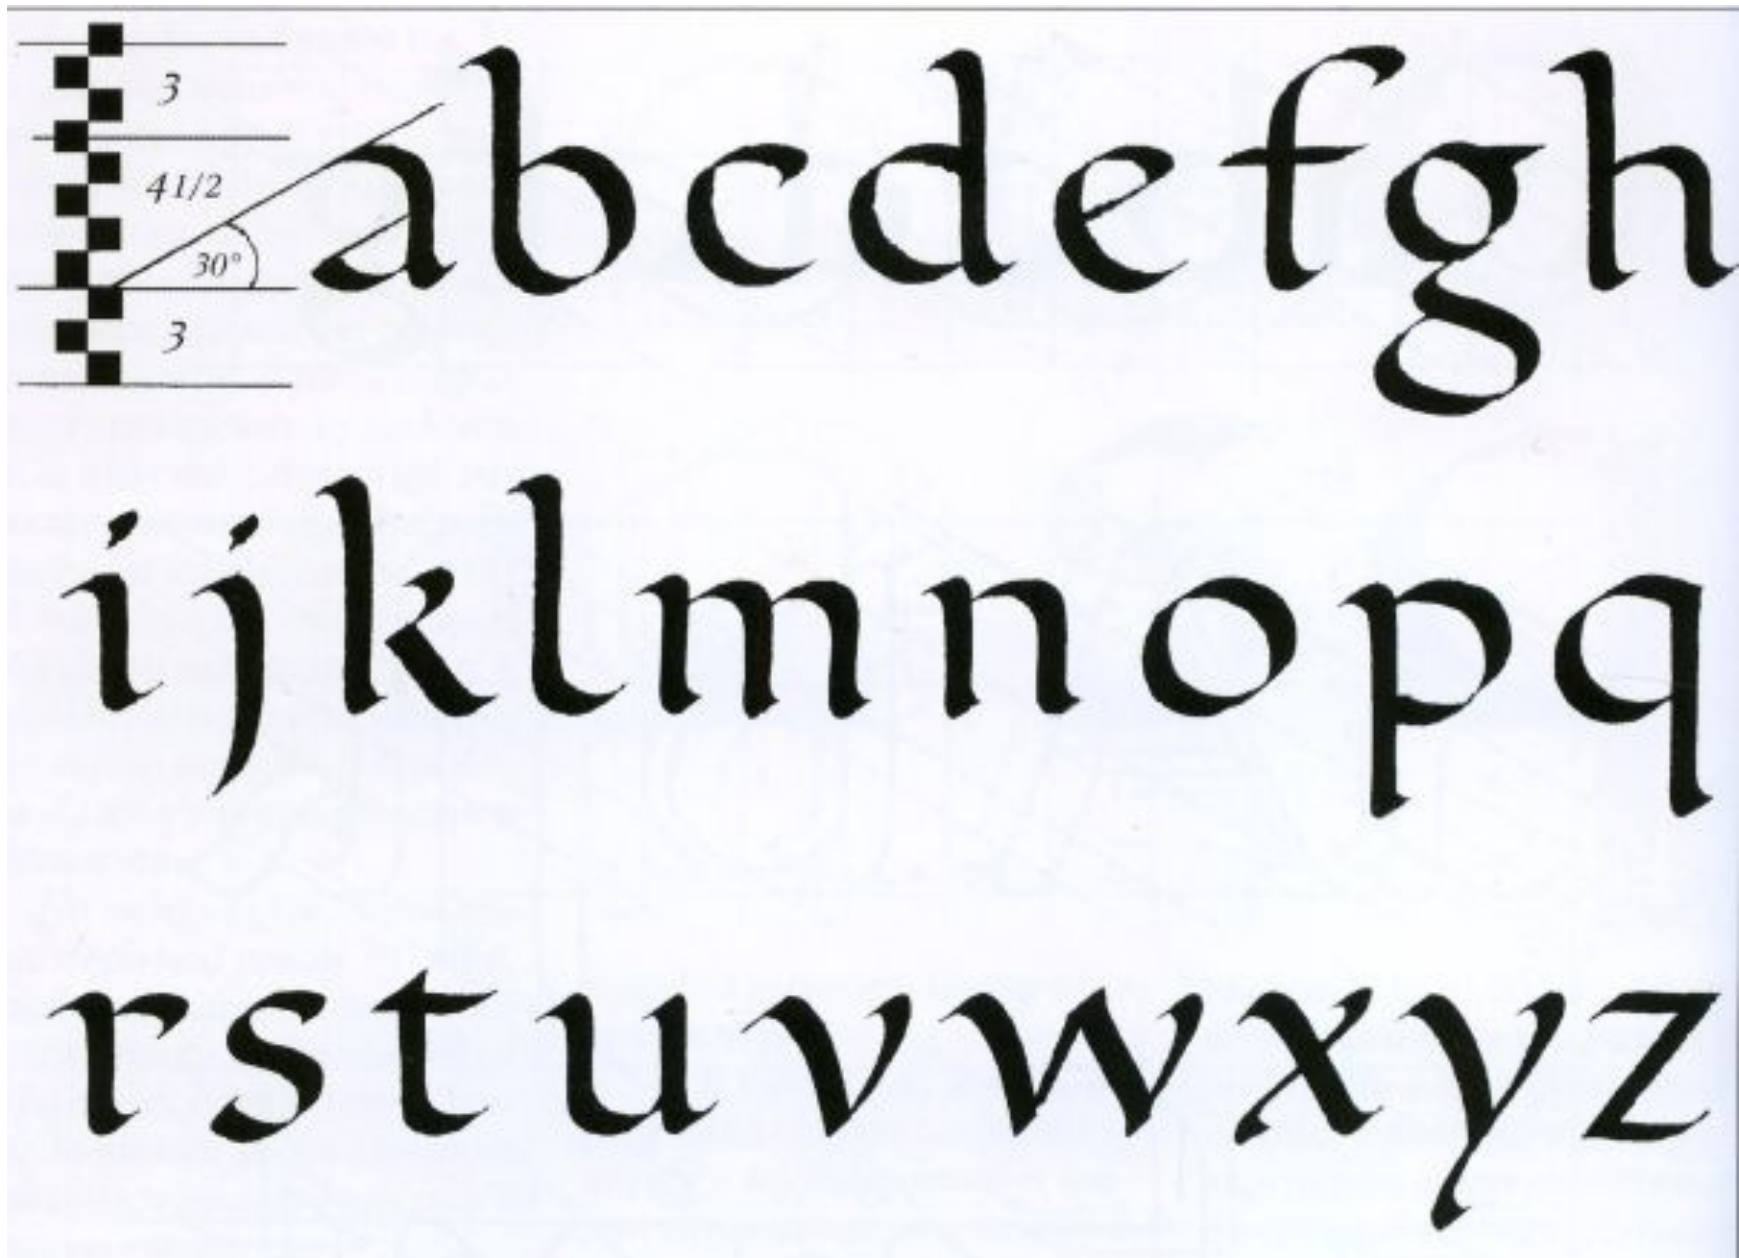 3
4 1/2
30°
3
abcdefgh
ijklmnopq
rstuvwxyz